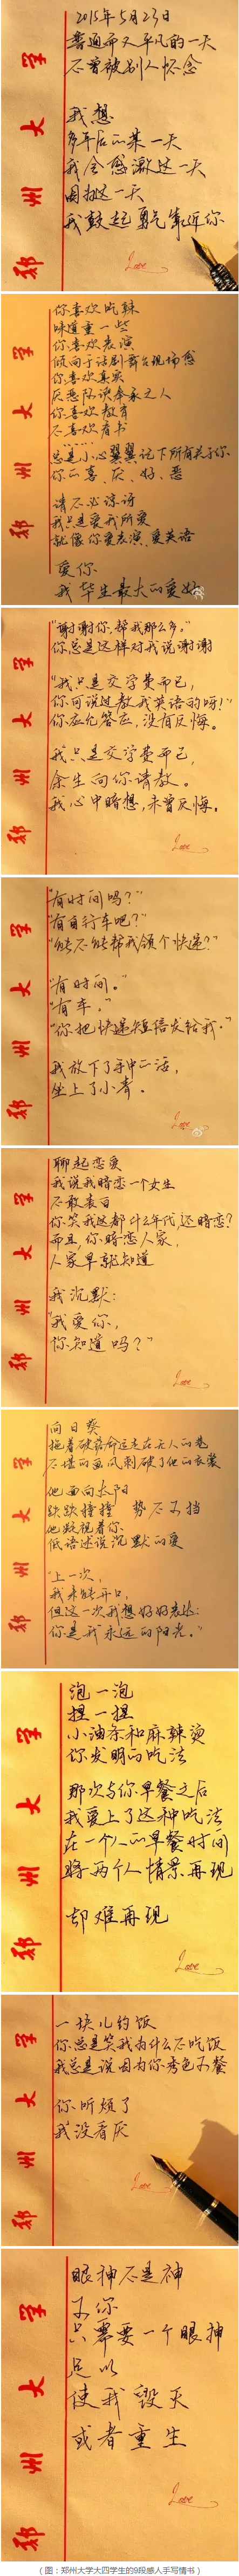 郑州大学
2015年5月23日
普通而又平凡的一天
不曾被别人怀念
我想
多年后的某一天
我会感激这一天
因为这一天
我鼓起勇气靠近你
Love
郑州大学
你喜欢吃辣
味道重一些
你喜欢表演
倾向于话剧舞台现场感
你喜欢真实
厌恶阿谀奉承之人
你喜欢教育
不喜欢看书
……
总是小心翼翼记下所有关于你
你的喜、厌、好、恶
请不必惊讶
我只是爱我所爱
就像你爱表演、爱英语
爱你
我毕生最大的爱好
郑州大学
“谢谢你,帮我那么多。”
你总是这样对我说谢谢
“我只是交学费而已,
你可说过教我英语的呀!”
你应允答应,没有反悔。
我只是交学费而已,
余生向你请教。
我心中暗想,未曾反悔。
Love
郑州大学
“有时间吗?”
“有自行车吧?”
“能不能帮我领个快递?”
“有时间。”
“有车。”
“你把快递短信发给我。”
我放下了手中的活,
坐上了小青。
Love
郑州大学
聊起恋爱
我说我暗恋一个女生
不敢表白
你笑我这都什么年代,还暗恋?
而且,你暗恋人家,
人家早就知道
我沉默:
“我爱你,
你知道吗?”
Love
郑州大学
向日葵
拖着破落命运走在无人的巷
不堪的画风刺破了他的衣裳
他面向太阳
跌跌撞撞 势不可挡
他跂视着你
低语述说沉默的爱
“上一次,
我未能开口,
但这一次我想好好表达:
你是我永远的阳光。”
郑州大学
泡一泡
捏一捏
小油条和麻辣烫
你发明的吃法
那次与你早餐之后
我爱上了这种吃法
在一个人的早餐时间
将两个人情景再现
却难再现
Love
郑州大学
一块儿约饭
你总是笑我为什么不吃饭
我总是说因为你秀色可餐
你听烦了
我没看厌
Love
郑州大学
眼神不是神
可你
只需要一个眼神
足以
使我毁灭
或者重生
(图:郑州大学大四学生的9段感人手写情书)